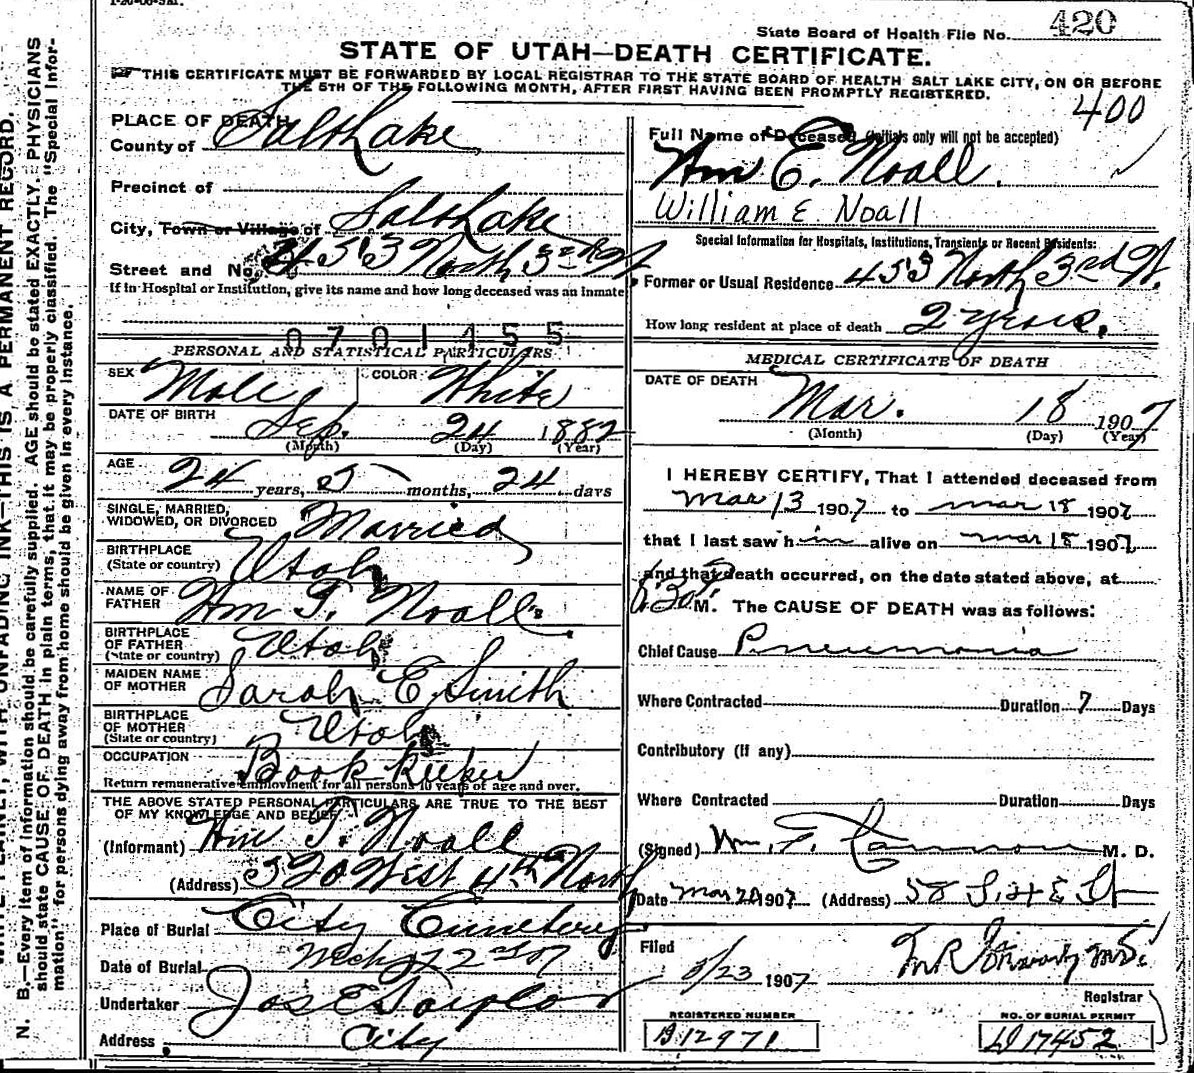 State Board of Health File No. 420
STATE OF UTAH—DEATH CERTIFICATE.
THIS CERTIFICATE MUST BE FORWARDED BY LOCAL REGISTRAR TO THE STATE BOARD OF HEALTH SALT LAKE CITY, ON OR BEFORE
THE 5TH OF THE FOLLOWING MONTH, AFTER FIRST HAVING BEEN PROMPTLY REGISTERED.
400
PLACE OF DEATH
County of Salt Lake
Precinct of
City, Town or Village of Salt Lake
Street and No. 453 North 3rd W
If in Hospital or Institution, give its name and how long deceased was an inmate
0701455
PERSONAL AND STATISTICAL PARTICULARS
SEX Male COLOR White
DATE OF BIRTH Sep. 24 1882
(Month) (Day) (Year)
AGE 24 years, 5 months, 24 days
SINGLE, MARRIED,
WIDOWED, OR DIVORCED Married
BIRTHPLACE
(State or country) Utah
NAME OF
FATHER Wm T. Noall
BIRTHPLACE
OF FATHER
(State or country) Utah
MAIDEN NAME
OF MOTHER Sarah E Smith
BIRTHPLACE
OF MOTHER
(State or country) Utah
OCCUPATION Book keeper
Return remunerative employment for all persons 10 years of age and over.
THE ABOVE STATED PERSONAL PARTICULARS ARE TRUE TO THE BEST
OF MY KNOWLEDGE AND BELIEF
(Informant) Wm T. Noall
(Address) 320 West 4th North
Place of Burial City Cemetery
Date of Burial
Undertaker Jos E Taylor
Address City
Full Name of Deceased (initials only will not be accepted)
Wm E. Noall.
William E. Noall
Special Information for Hospitals, Institutions, Transients or Recent Residents:
Former or Usual Residence 453 North 3rd W.
How long resident at place of death 2 years.
MEDICAL CERTIFICATE OF DEATH
DATE OF DEATH Mar. 18 1907
(Month) (Day) (Year)
I HEREBY CERTIFY, That I attended deceased from
Mar 13 1907 to mar 18 1907
that I last saw him alive on mar 18 1907,
and that death occurred, on the date stated above, at
630 P M. The CAUSE OF DEATH was as follows:
Chief Cause Pneumonia
Where Contracted Duration 7 Days
Contributory (If any)
Where Contracted Duration Days
(Signed) Wm. F. M. D.
Date Mar 20 1907 (Address) 58
Filed 3/23 1907 M.D.
Registrar
REGISTERED NUMBER
B12971
NO. OF BURIAL PERMIT
D17452
N. B.—Every item of information should be carefully supplied. AGE should be stated EXACTLY. PHYSICIANS
should state CAUSE OF DEATH in plain terms, that it may be properly classified. The "Special Infor-
mation" for persons dying away from home should be given in every instance.
WRITE PLAINLY, WITH UNFADING INK—THIS IS A PERMANENT RECORD.